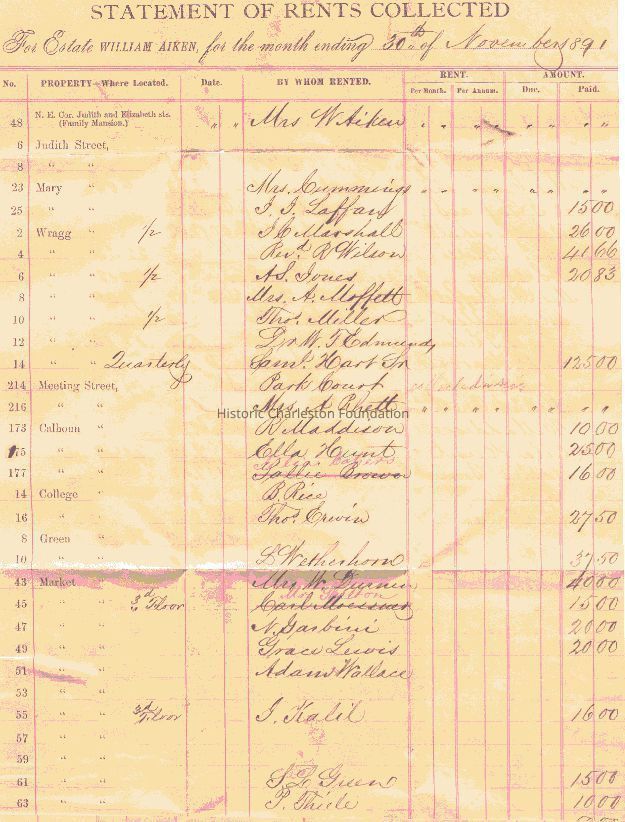 STATEMENT OF RENTS COLLECTED
For Estate WILLIAM AIKEN, for the month ending 30th of November 1891
No. PROPERTY—Where Located. Date. BY WHOM RENTED. RENT. AMOUNT.
Per Month. Per Annum. Due. Paid.
48 N. E. Cor. Judith and Elizabeth sts. (Family Mansion.) " " Mrs W Aiken " " " " " "
6 Judith Street,
8 " "
23 Mary " Mrs. Cummings " " " " " " " "
25 " " J. J. Laffan 15 00
2 Wragg " 1/2 J C Marshall 26 00
4 " " Revd. R Wilson 41 66
6 " " 1/2 A S. Jones 20 83
8 " " Mrs. A. Moffett
10 " " 1/2 Thos. Miller
12 " " Dr. W. T Edmunds
14 " " Quarterly Saml. Hart Sr 125 00
214 Meeting Street, Park Court
216 " " Mrs. A Rhett " " " " " " " "
Historic Charleston Foundation
173 Calhoun " R Maddison 10 00
175 " " Ella Hunt 25 00
177 " " Sallie Brown 16 00
14 College " B. Rice
16 " " Thos. Erwin 27 50
8 Green "
10 " " L Wetherhorn 37 50
43 Market " Mrs W. 40 00
45 " " 3d Floor Carl 15 00
47 " " N. Garbini 20 00
49 " " Grace Lewis 20 00
51 " " Adam Wallace
53 " "
55 " " 3d Floor G. Kalil 16 00
57 " "
59 " "
61 " " Green 15 00
63 " " P. Thiele 10 00